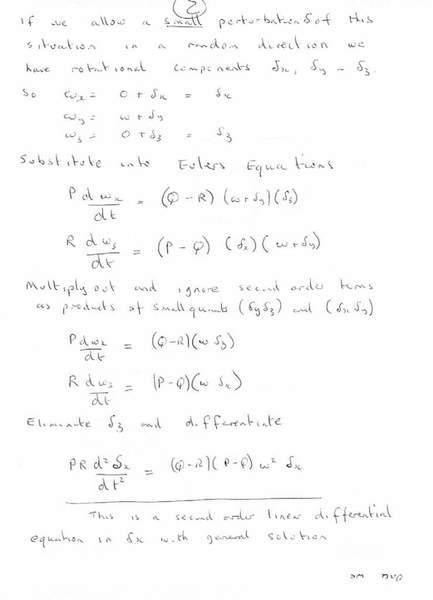 2
If we allow a small perturbation δ of this
situation in a random direction we
have rotational components δx, δy – δ3.
So ωx = 0 + δx = δx
ωy = ω + δy
ω3 = 0 + δ3 = δ3
Substitute into Eulers Equations
P dωx/dt = (Q – R) (ω + δy) (δ3)
R dω3/dt = (P – Q) (δx) (ω + δy)
Multiply out and ignore second order terms
as products of small quants (δyδ3) and (δxδy)
P dωx/dt = (Q–R)(ω δ3)
R dω3/dt = (P–Q)(ω δx)
Eliminate δ3 and differentiate
PR d²δx/dt² = (Q–R)(P–Q) ω² δx
This is a second order linear differential
equation in δx with general solution